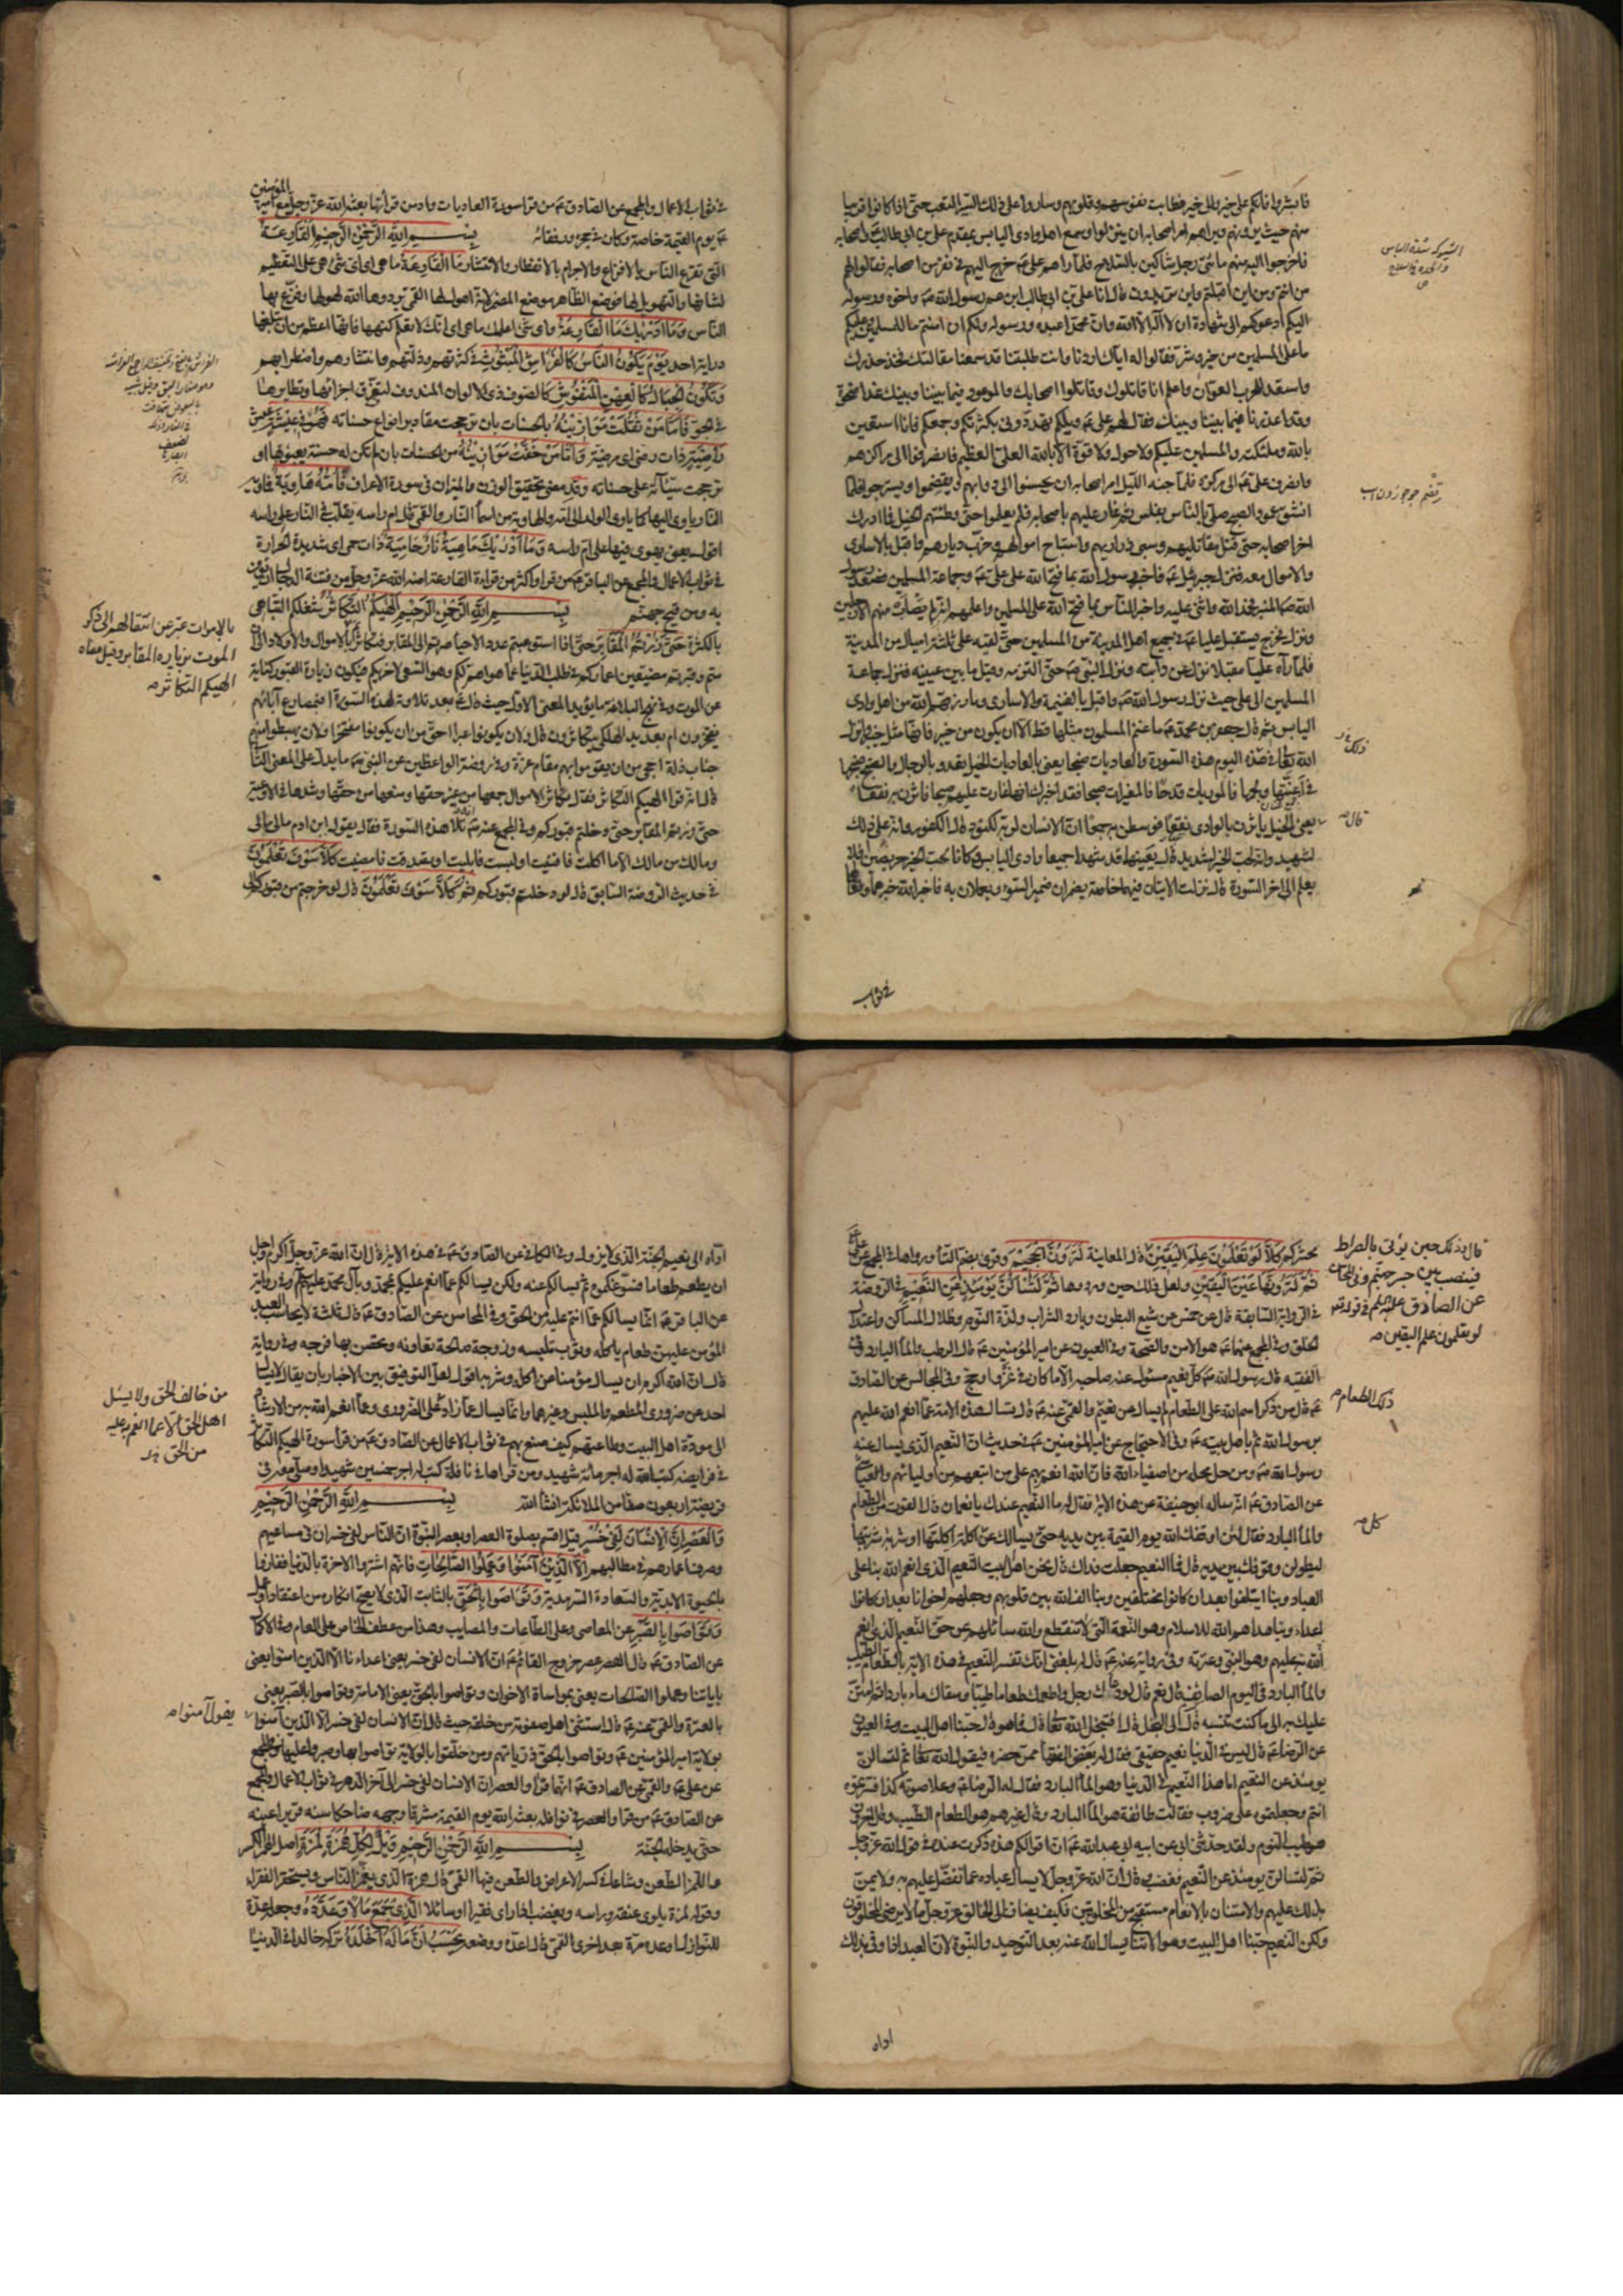 فابشروا فانكم على خير والى خير فطابت نفوسهم وقلوبهم وساروا على ذلك السير التعب حتى اذا كانوا قريبا
منهم حيث يرونهم ويراهم امر اصحابه ان ينزلوا وسمع اهل وادى اليابس بمقدم على بن ابى طالب واصحابه
فاخرجوا اليه منهم مائتى رجل شاكين بالسلاح فلما راهم على خرج اليهم فى نفر من اصحابه فقالوا لهم
من انتم ومن اين اقبلتم واين تريدون قال انا على بن ابى طالب ابن عم رسول الله واخوه ورسوله
اليكم ادعوكم الى شهادة ان لا اله الا الله وان محمدا عبده ورسوله ولكم ان امنتم ما للمسلمين وعليكم
ما على المسلمين من خير وشر فقالوا له اياك اردنا وانت طلبتنا قد سمعنا مقالتك فخذ حذرك
واستعد للحرب العوان واعلم انا قاتلوك وقاتلوا اصحابك والموعود فيما بيننا وبينك غدا ضحوة
وقد اعذرنا فيما بيننا وبينك فقال لهم على ويلكم تهددونى بكثرتكم وجمعكم فانا استعين
بالله وملئكته والمسلمين عليكم ولا حول ولا قوة الا بالله العلى العظيم فانصرفوا الى مراكزهم
وانصرف على الى مركزه فلما جنه الليل امر اصحابه ان يحسنوا الى دوابهم ويقضموا ويسرجوا فلما
انشق عمود الصبح صلى بالناس بغلس ثم غار عليهم باصحابه فلم يعلموا حتى وطئتهم الخيل فما ادرك
اخر اصحابه حتى قتل مقاتليهم وسبى ذراريهم واستباح اموالهم وخرب ديارهم واقبل بالاسارى
والاموال معه فنزل جبرئيل فاخبر رسول الله بما فتح الله على على وجماعة المسلمين فصعد رسول
الله المنبر فحمد الله واثنى عليه واخبر الناس بما فتح الله على المسلمين واعلمهم انه لم يصب منهم الا رجلين
ونزل فخرج يستقبل عليا فى جميع اهل المدينة من المسلمين حتى لقيه على ثلثة اميال من المدينة
فلما رآه على مقبلا نزل عن دابته ونزل النبى حتى التزمه وقبل ما بين عينيه فنزل جماعة
المسلمين الى على حيث نزل رسول الله واقبل بالغنيمة والاسارى وما رزقهم الله من اهل وادى
اليابس ثم قال جعفر بن محمد ما غنم المسلمون مثلها قط الا ان يكون من خيبر فانها مثل خيبر وانزل
الله تعالى فى هذه اليوم هذه السورة والعاديات ضبحا يعنى بالعاديات الخيل تعدو بالرجال والضبح ضبحها
فى اعنتها ولجمها فالموريات قدحا فالمغيرات صبحا فقد اخبرك انها غارت عليهم صبحا فاثرن به نقعا
يعنى الخيل ياثرن بالوادى نقعا فوسطن به جمعا ان الانسان لربه لكنود قال لكفور وانه على ذلك
لشهيد وانه لحب الخير لشديد قال يعنيهما قد شهدا جميعا وادى اليابس وكانا لحب الخير حريصين افلا
يعلم الى اخر السورة قال نزلت الايتان فيهما خاصة يضمران ضمير السوء ويعملان به فاخبر الله خبرهما وفعالهما
فى ثواب
المؤمنين
فى ثواب الاعمال والمجمع عن الصادق من قرا سورة العاديات وادمن قراتها بعثه الله عز وجل مع امير
يوم القيمة خاصة وكان فى حجره ورفقائه بسم الله الرحمن الرحيم القارعة
التى تقرع الناس بالافزاع والاجرام بالانفطار والانتشار ما القارعة ما هى اى اى شئ هى على التعظيم
لشانها والتهويل لها فوضع الظاهر موضع المضمر لانه اهول لها القمى يرددها الله لهولها وفزع بها
الناس وما ادريك ما القارعة واى شئ اعلمك ما هى اى انك لا تعلم كنهها فانها اعظم من ان تبلغها
دراية احد يوم يكون الناس كالفراش المبثوث فى كثرتهم وذلتهم وانتشارهم واضطرابهم
وتكون الجبال كالعهن المنفوش كالصوف ذى الالوان المندوف لتفرق اجزائها وتطايرها
فى الجو فاما من ثقلت موازينه بالحسنات بان ترجحت مقادير انواع حسناته فهو فى عيشة عيش
راضية ذات رضى اى مرضية واما من خفت موازينه من الحسنات بان لم تكن له حسنة يعبؤ بها او
ترجحت سيئاته على حسناته وقد مضى تحقيق الوزن والميزان فى سورة الاعراف فامه هاوية فماويه
النار ياوى اليها كما ياوى الولد الى امه والهاوية من اسماء النار والقمى قال ام راسه يقلب فى النار على راسه
اقول يعنى يهوى فيها على ام راسه وما ادريك ما هيه نار حامية ذات حمى اى شديدة الحرارة
فى ثواب الاعمال والمجمع عن الباقر من قرا واكثر من قراءة القارعة امنه الله عز وجل من فتنة الدجال ان يؤمن
به ومن قيح جهنم بسم الله الرحمن الرحيم الهيكم التكاثر شغلكم التباهى
بالكثرة حتى زرتم المقابر حتى اذا استوعبتم عدد الاحياء صرتم الى المقابر فتكاثرتم بالاموال والاولاد الى ان
متم وقبرتم مضيعين اعماركم فى طلب الدنيا عما هو اهم لكم وهو السعى لاخريكم فيكون زيارة القبور كناية
عن الموت وفى نهج البلاغة ما يؤيد المعنى الاول حيث قال بعد تلاوته لهذه السورة افبمصارع آبائهم
يفخرون ام بعديد الهلكى يتكاثرون قال ولان يكونوا عبرا احق من ان يكونوا مفتخرا ولان يهبطوا منهم
جناب ذلة احجى من ان يقوموا بهم مقام عزة وفى روضة الواعظين عن النبى ما يدل على المعنى الثانى
قال انه قرا الهيكم التكاثر فقال تكاثر الاموال جمعها من غير حقها ومنعها من حقها وشدها فى الاوعية
حتى زرتم المقابر حتى دخلتم قبوركم وفى المجمع عنه انه تلا هذه السورة فقال يقول ابن ادم مالى مالى
ومالك من مالك الا ما اكلت فافنيت او لبست فابليت او تصدقت فامضيت كلا سوف تعلمون
فى حديث الروضة السابق قال لو دخلتم قبوركم ثم كلا سوف تعلمون قال لو خرجتم من قبوركم الى
بالاموات عبر عن انتقالهم الى ذكر
الموت بزيارة المقابر وقيل معناه
الهيكم التكاثر
محشركم كلا لو تعلمون علم اليقين قال المعاينة لترون الجحيم وقرئ بضم التاء ورواها فى المجمع عن على
ثم لترونها عين اليقين ولعل ذلك حين ورودها ثم لتسئلن يومئذ عن النعيم فى الروضة
فى الرواية السابقة قال عن خمس عن شبع البطون وبارد الشراب ولذة النوم وظلال المساكن واعتدال
الخلق وفى المجمع عنهما هو الامن والصحة وفى العيون عن امير المؤمنين قال الرطب والماء البارد وفى
الفقيه قال رسول الله كل نعيم مسئول عنه صاحبه الا ما كان فى غزو او حج وفى المجالس عن الصادق
قال من ذكر اسم الله على الطعام لم يسال عن نعيم والقمى عنه قال تسال هذه الامة عما انعم الله عليهم
برسول الله ثم باهل بيته وفى الاحتجاج عن امير المؤمنين فى حديث ان النعيم الذى يسال عنه
رسول الله ومن حل محله من اصفياء الله فان الله انعم بهم على من اتبعهم من اوليائهم والعياشى
عن الصادق انه ساله ابو حنيفة عن هذه الاية فقال له ما النعيم عندك يا نعمان قال القوت من الطعام
والماء البارد فقال لئن اوقفك الله يوم القيمة بين يديه حتى يسالك عن اكلة اكلتها او شربة شربتها
ليطولن وقوفك بين يديه قال فما النعيم جعلت فداك قال نحن اهل البيت النعيم الذى انعم الله بنا على
العباد وبنا ايتلفوا بعد ان كانوا مختلفين وبنا الف الله بين قلوبهم وجعلهم اخوانا بعد ان كانوا
اعداء وبنا هداهم الله للاسلام وهو النعمة التى لا تنقطع والله سائلهم عن حق النعيم الذى انعم
الله به عليهم وهو النبى وعترته وفى رواية عنه قال له بلغنى انك تفسر النعيم فى هذه الاية بالطعام الطيب
والماء البارد فى اليوم الصائف قال نعم قال لو دعاك رجل واطعمك طعاما طيبا وسقاك ماء باردا ثم امتن
عليك به الى ما كنت تنسبه قال الى البخل قال افيبخل الله تعالى قال فما هو قال حبنا اهل البيت وفى العيون
عن الرضا قال ليس فى الدنيا نعيم حقيقى فقال له بعض الفقهاء ممن حضره فيقول الله تعالى ثم لتسالن
يومئذ عن النعيم اما هذا النعيم فى الدنيا وهو الماء البارد فقال له الرضا وعلا صوته كذا فسرتموه
انتم وجعلتموه على ضروب فقالت طائفة هو الماء البارد وقال غيرهم هو الطعام الطيب وقال اخرون
هو طيب النوم ولقد حدثنى ابى عن ابيه ابى عبد الله ان اقوالكم هذه ذكرت عنده فى قول الله عز وجل
ثم لتسالن يومئذ عن النعيم فغضب وقال ان الله عز وجل لا يسال عباده عما تفضل عليهم به ولا يمن
بذلك عليهم والامتنان بالانعام مستقبح من المخلوقين فكيف يضاف الى الخالق عز وجل ما لا يرضى المخلوقون
ولكن النعيم حبنا اهل البيت وموالاتنا يسال الله عنه بعد التوحيد والنبوة لان العبد اذا وفى بذلك
اداه
قال وذلك حين يؤتى بالصراط
فينصب بين جسر جهنم وفى المحاسن
عن الصادق عليه السلم فى قوله
لو تعلمون علم اليقين
ذلك الطعام
كل
اداه الى نعيم الجنة الذى لا يزول وفى الكافى عن الصادق فى هذه الاية قال ان الله عز وجل اكرم واجل
ان يطعم طعاما فسوغكموه ثم يسالكم عنه ولكن يسالكم عما انعم عليكم بمحمد وبآل محمد وفى رواية
عن الباقر انما يسالكم عما انتم عليه من الحق وفى المحاسن عن الصادق قال ثلثة لا يحاسب العبد
المؤمن عليهن طعام ياكله وثوب يلبسه وزوجة صالحة تعاونه ويحصن بها فرجه وفى رواية
قال ان الله اكرم ان يسال مؤمنا عن اكله وشربه اقول لعل التوفيق بين الاخبار بان يقال لا يسال
احد عن ضرورى المطعم والملبس وغيرهما وانما يسال عما زاد على الضرورى وعما انعم الله به من الارشاد
الى مودة اهل البيت وطاعتهم كيف صنع بهم فى ثواب الاعمال عن الصادق من قرا سورة الهيكم التكاثر
فى فريضة كتب الله له اجر مائة شهيد ومن قراها فى نافلة كتب له اجر خمسين شهيدا وصلى معه فى
فريضته اربعون صفا من الملائكة انشاء الله بسم الله الرحمن الرحيم
والعصر ان الانسان لفى خسر قيل اقسم بصلوة العصر او بعصر النبوة ان الناس لفى خسران فى مساعيهم
وصرف اعمارهم فى مطالبهم الا الذين آمنوا وعملوا الصالحات فانهم اشتروا الاخرة بالدنيا ففازوا
بالحيوة الابدية والسعادة السرمدية وتواصوا بالحق بالثابت الذى لا يصح انكاره من اعتقاد او عمل
وتواصوا بالصبر عن المعاصى وعلى الطاعات والمصايب وهذا من عطف الخاص على العام وفى الاكمال
عن الصادق قال العصر عصر خروج القائم ان الانسان لفى خسر يعنى اعداءنا الا الذين امنوا يعنى
باياتنا وعملوا الصالحات يعنى بمواساة الاخوان وتواصوا بالحق يعنى الامامة وتواصوا بالصبر يعنى
بالعترة والقمى عنه قال استثنى اهل صفوته من خلقه حيث قال ان الانسان لفى خسر الا الذين آمنوا
بولاية امير المؤمنين وتواصوا بالحق ذرياتهم ومن خلفوا بالولاية تواصوا بها وصبروا عليها وفى المجمع
عن على والقمى عن الصادق انهما قرآ والعصر ان الانسان لفى خسر الى آخر الدهر فى ثواب الاعمال والمجمع
عن الصادق من قرا والعصر فى نوافله بعثه الله يوم القيمة مشرقا وجهه ضاحكا سنه قريرا عينه
حتى يدخل الجنة بسم الله الرحمن الرحيم ويل لكل همزة لمزة اصل الهمز الكسر
واللمز الطعن وشاعا فى كسر الاعراض والطعن فيها القمى قال همزة الذى يغمز الناس ويستحقر الفقراء
وقوله لمزة يلوى عنقه وراسه ويغضب اذا راى فقيرا او سائلا الذى جمع مالا وعدده وجعله عدة
للنوازل او عده مرة بعد اخرى القمى قال اعده ووضعه يحسب ان ماله اخلده تركه خالدا فى الدنيا
من خالف الحق ولا يسئل
اهل الحق الا عما انعم به عليه
من الحق
يقول آمنوا